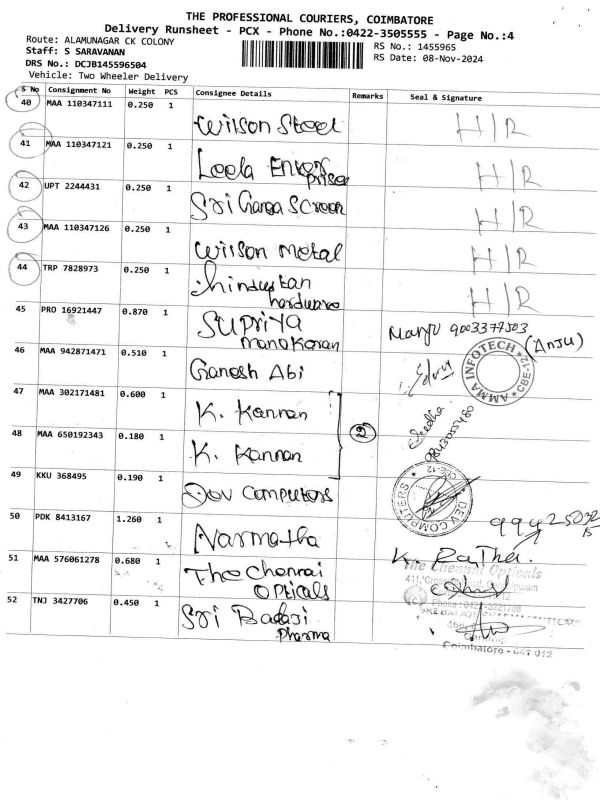 THE PROFESSIONAL COURIERS, COIMBATORE
Delivery Runsheet - PCX - Phone No.:0422-3505555 - Page No.:4
Route: ALAMUNAGAR CK COLONY
RS No.: 1455965
Staff: S SARAVANAN
RS Date: 08-Nov-2024
DRS No.: DCJB145596504
Vehicle: Two Wheeler Delivery
S No Consignment No Weight PCS Consignee Details Remarks Seal & Signature
40 MAA 110347111 0.250 1 Wilson Steel H/R
41 MAA 110347121 0.250 1 Leela Enter prises H/R
42 UPT 2244431 0.250 1 Sri Ganga Screen H/R
43 MAA 110347126 0.250 1 Wilson Metal H/R
44 TRP 7828973 0.250 1 hindustan hardware H/R
45 PRO 16921447 0.870 1 Supriya Manokaran Manju 9003377503 (Anju)
46 MAA 942871471 0.510 1 Ganesh Abi AMMA INFOTECH CBE-12
47 MAA 302171481 0.600 1 K. Kannan
48 MAA 650192343 0.180 1 K. Kannan 2
49 KKU 368495 0.190 1 Dev Computers DEV COMPUTERS CBE-12
50 PDK 8413167 1.260 1 Narmatha
51 MAA 576061278 0.680 1 The Chennai Opticals The Chennai Opticals
52 TNJ 3427706 0.450 1 Sri Badaji Pharma
Coimbatore - 641 012